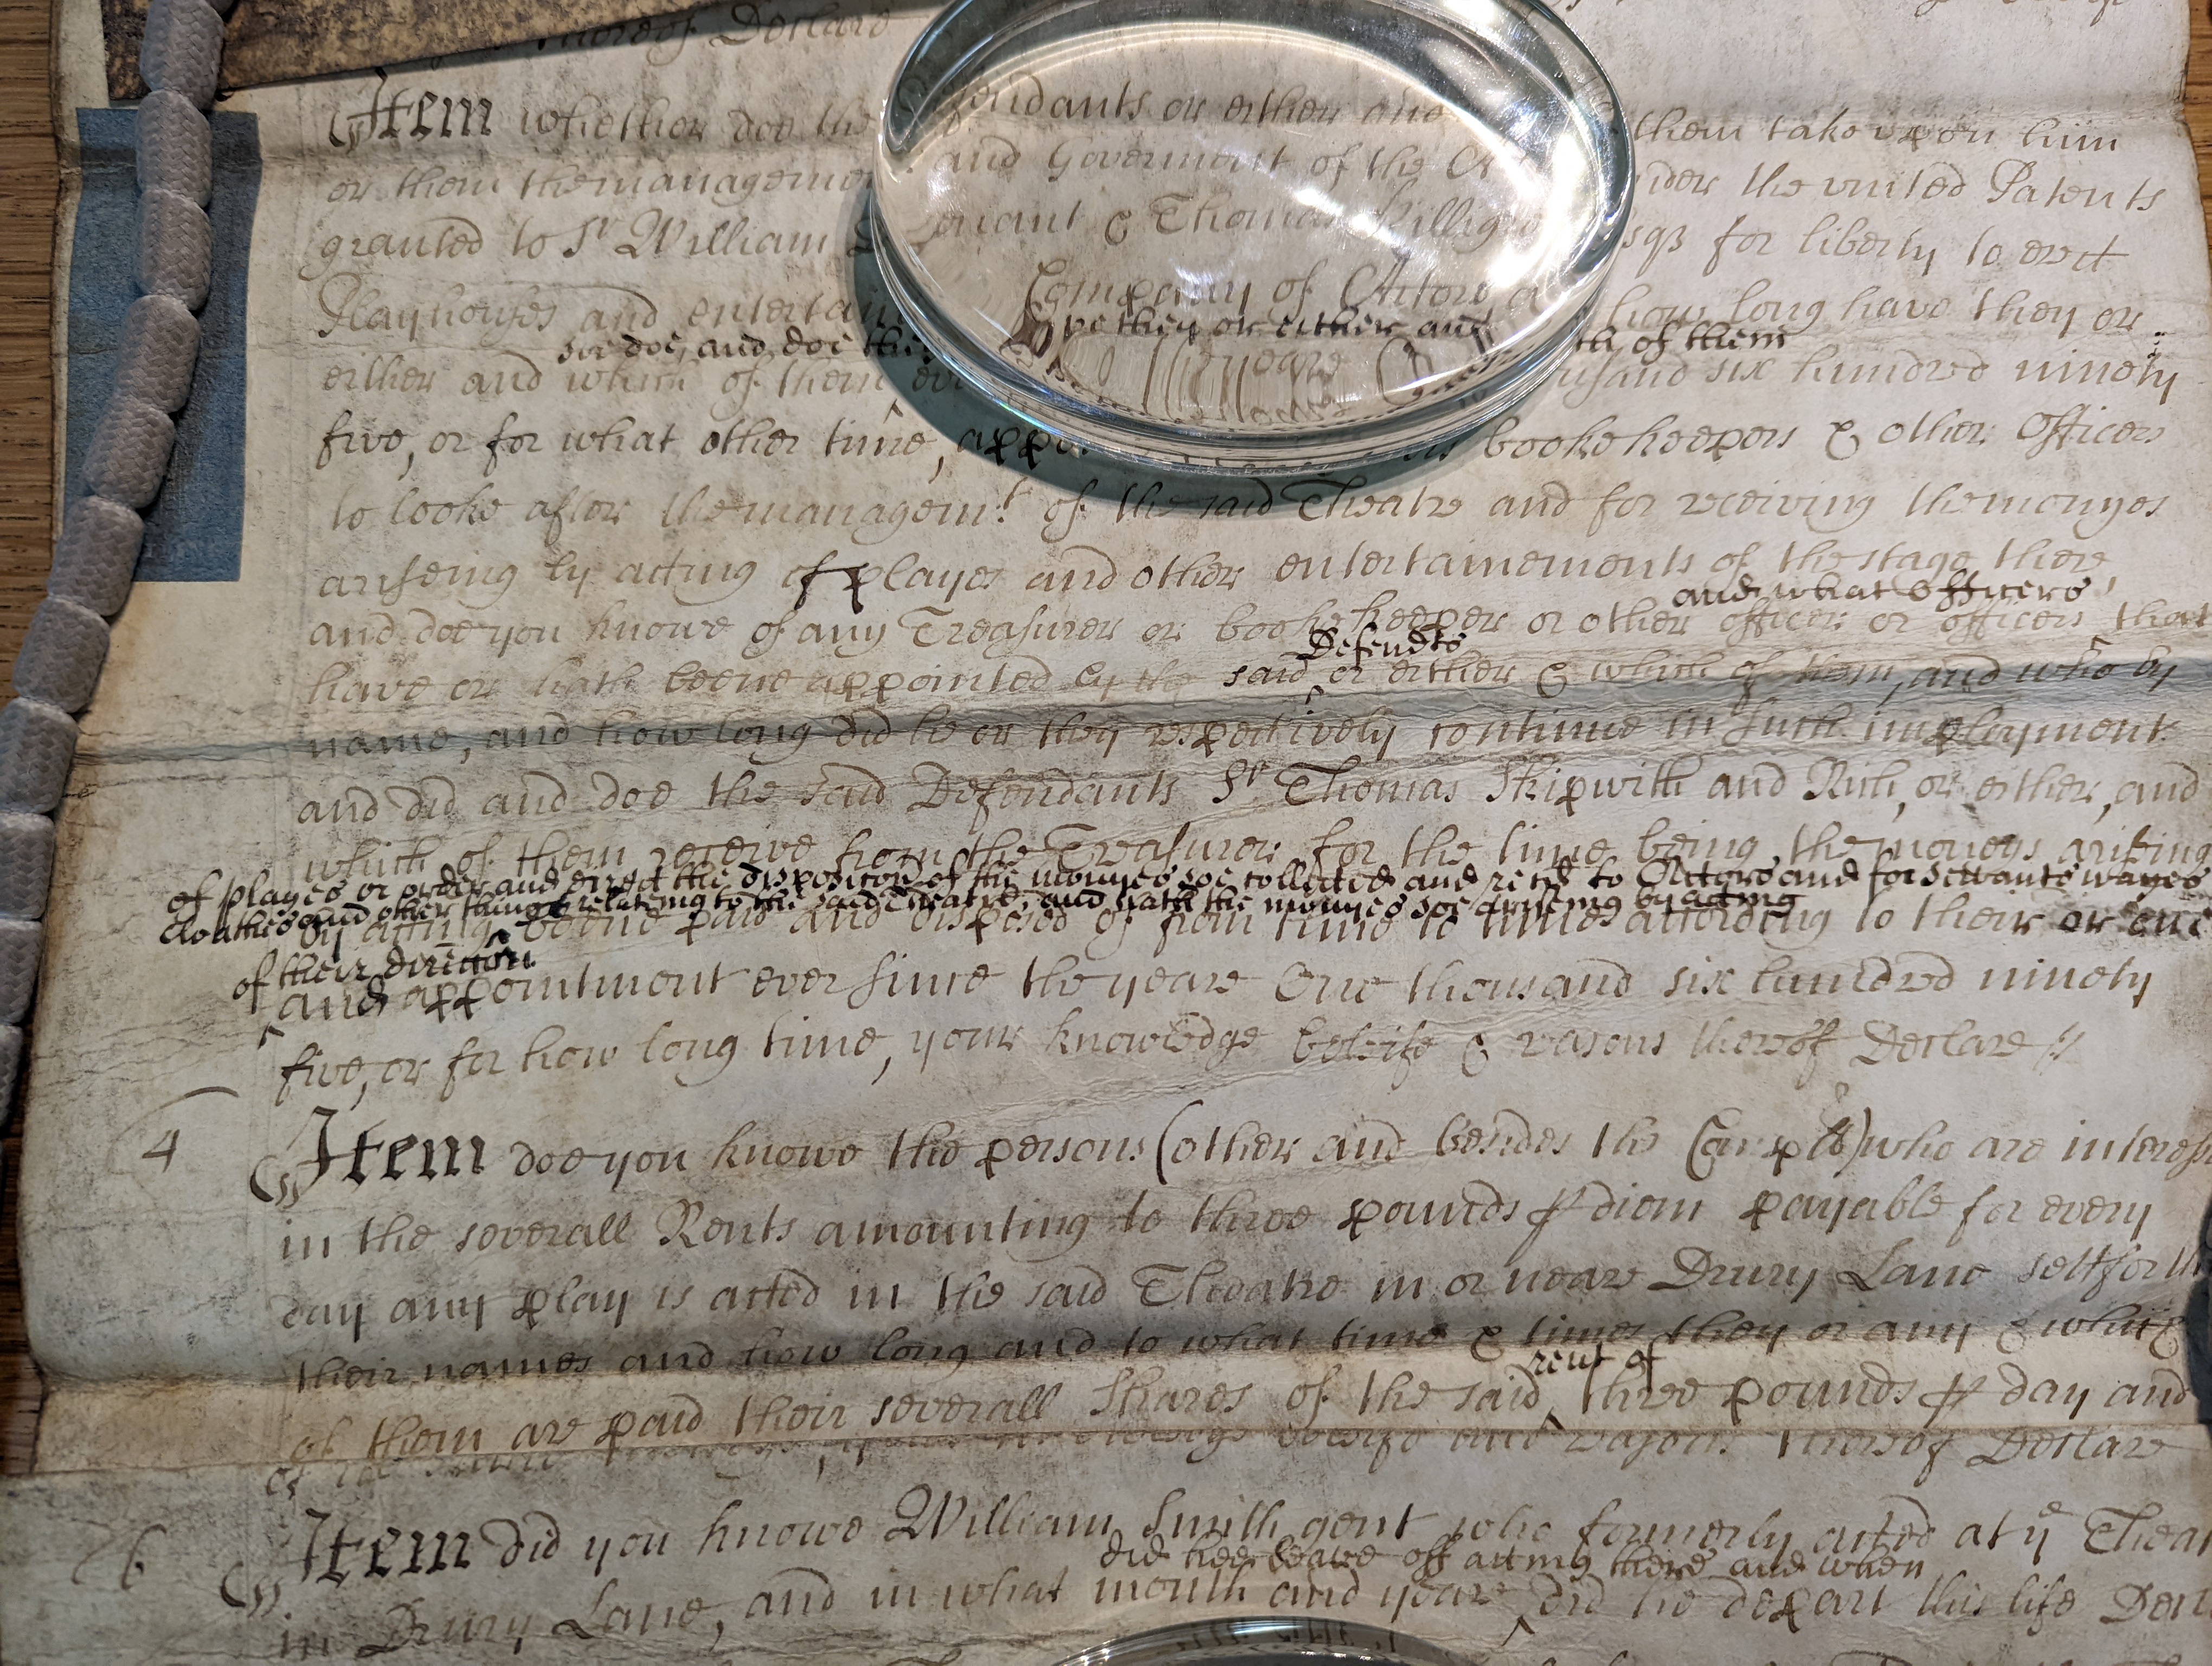 thereof Declare
Item whether doe the Defendants or either and of them take upon him
or them the management and Goverment of the under the united Patents
granted to Sr William Davenant & Thomas Killigrew Esqs for liberty to erect
Playhouses and entertain Company of Actors how long have they or
soe doe, and doe they or either and of them
either and which of them ever yeare One thousand six hundred ninety
five, or for what other time, bookekeepers & other Officers
to looke after the managemt. of the said Theatre and for receiving the monyes
ariseing by acting of playes and other entertainements of the stage there,
and what Officers
and doe you knowe of any Treasurer or bookekeeper or other officer or officers that
Defendts
have or hath beene appointed by the said or either & which of them, and who by
name, and how long did he or they respectively continue in such imployment
and did and doe the said Defendants Sr. Thomas Skipwith and Rich, or either, and
which of them receive from the Treasurer for the time being the moneys arising
of playes or order and direct the disposition of the monyes soe collected and recd to Actors and for servants wages
cloathes and other things relateing to the said Theatre, and hath the monyes soe ariseing by acting
by acting beene paid and disposed of from time to times according to their or
of their direction
and appointment ever since the yeare One thousand six hundred ninety
five, or for how long time, your knowledge beleife & reasons thereof Declare
4
Item doe you knowe the persons (other and besides the Complts) who are
in the severall Rents amounting to three pounds p diem payable for every
day any play is acted in the said Theatre in or neare Drury Lane settforth
their names and how long and to what time & times they or any & which
rent of
of them are paid their severall Shares of the said three pounds p day and
beleife and reasons thereof Declare
Item did you knowe William Smith gent who formerly acted at ye
did hee leave off acting there and when
in Drury Lane, and in what month and yeare did he depart this life